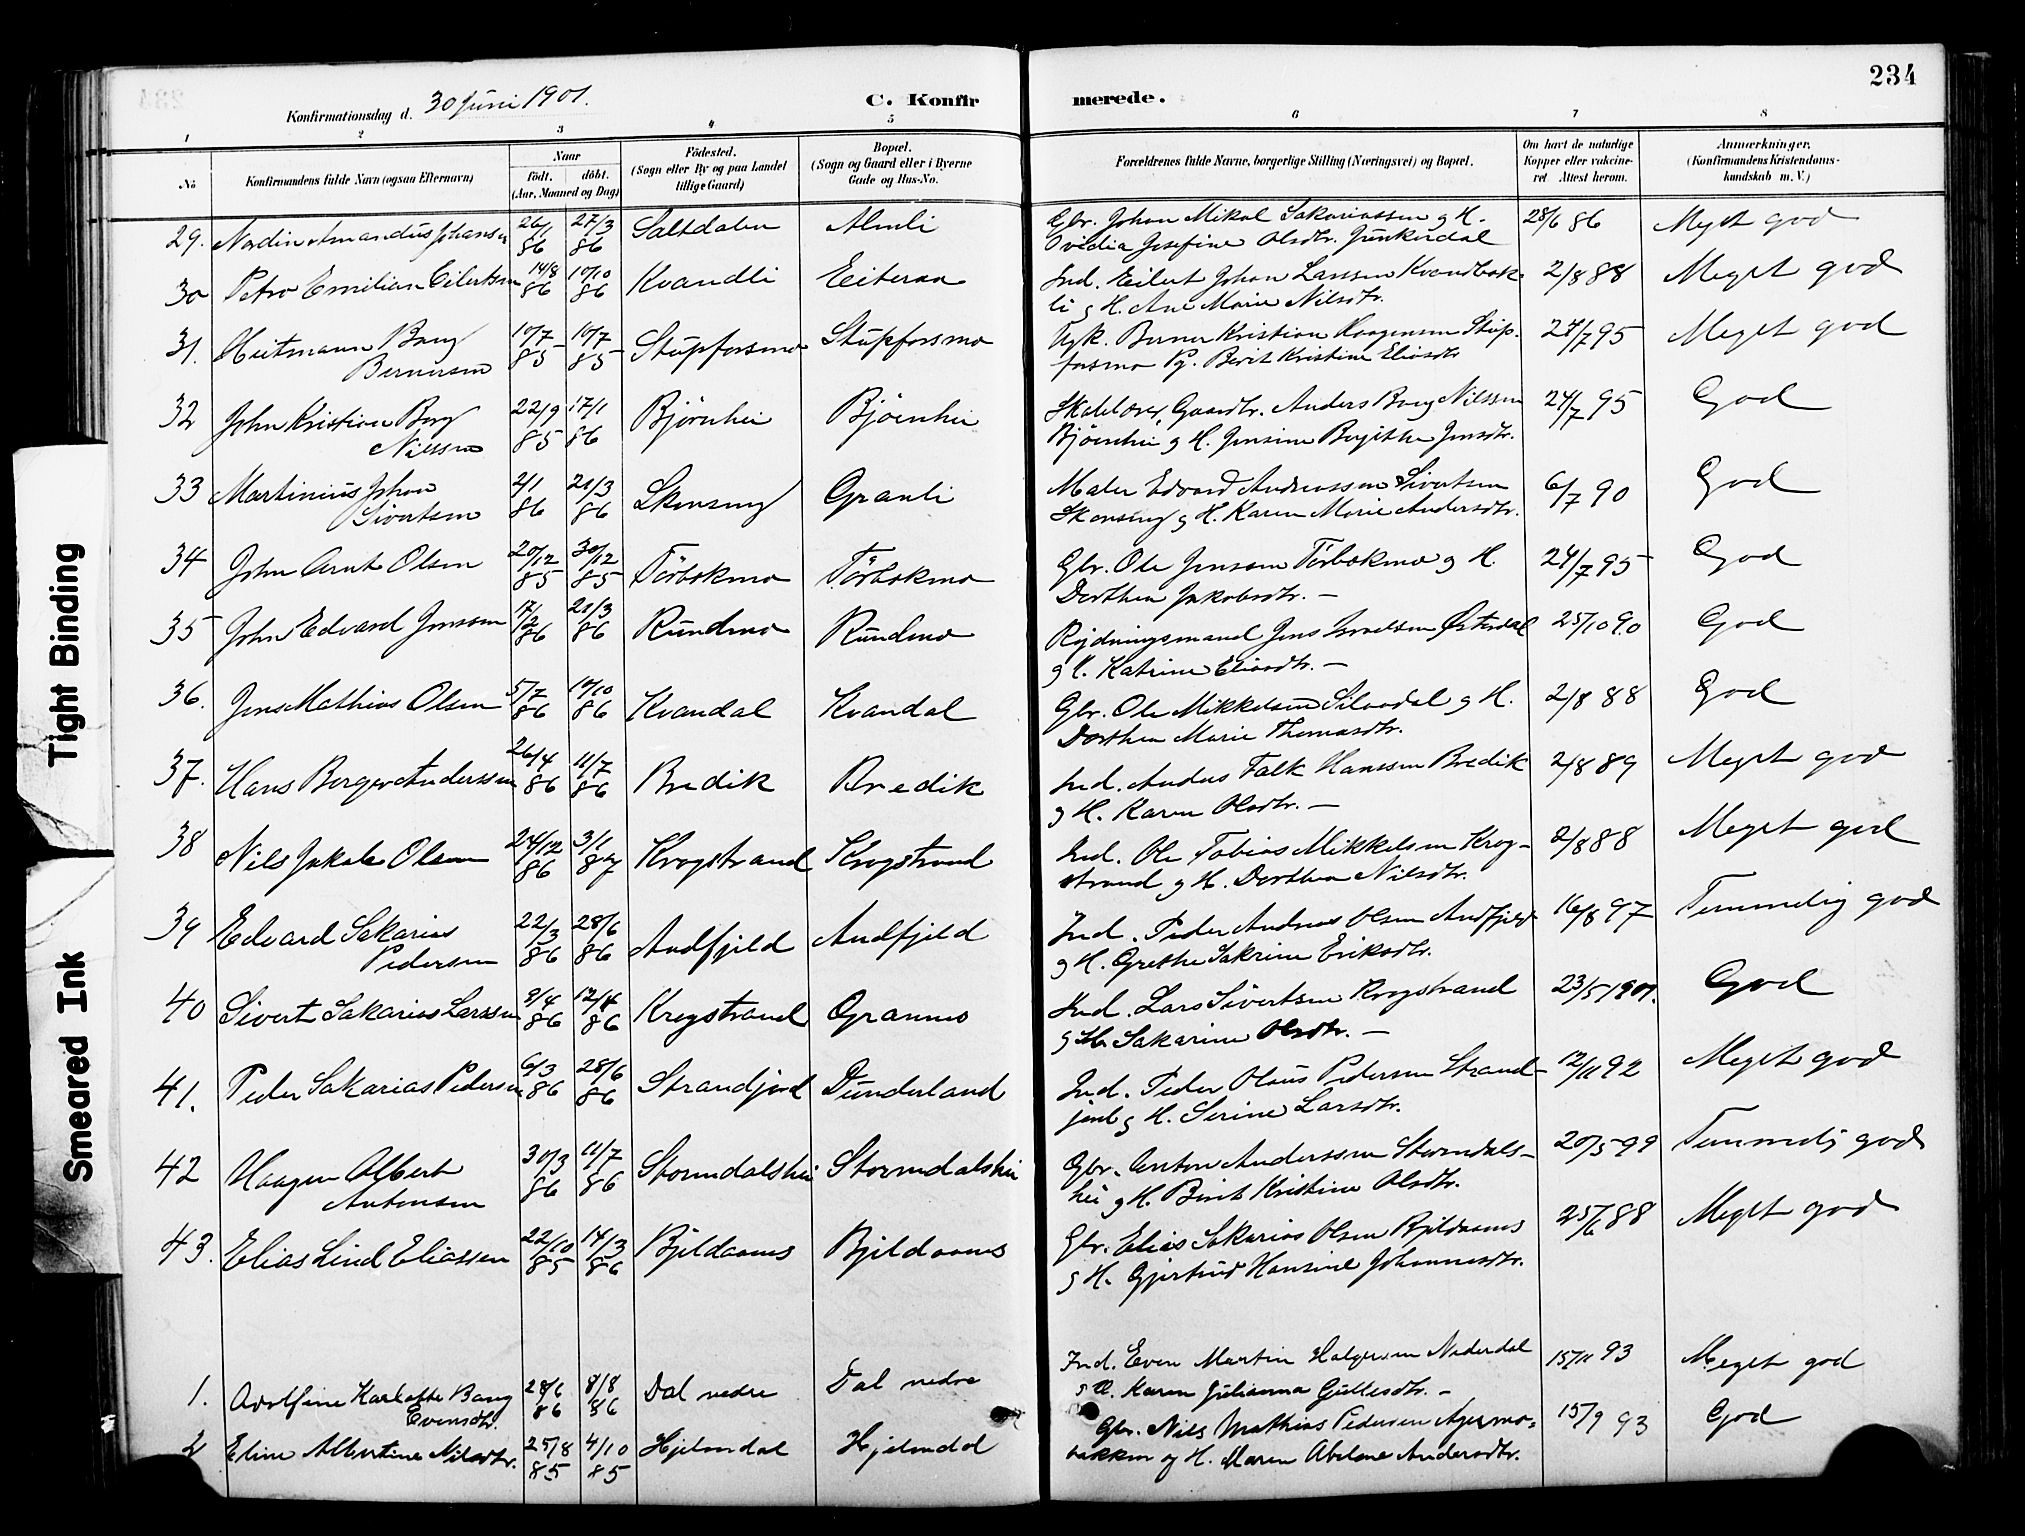 234
Konfirmationsdag d. 30 Juni 1901.
C. Konfirmerede.
1 2 3 4 5 6 7 8
No
Konfirmandens fulde Navn (ogsaa Efternavn)
Naar
födt. döbt.
(Aar, Maaned og Dag)
Födested.
(Sogn eller By og paa Landet
tillige Gaard)
Bopæl.
(Sogn og Gaard eller i Byerne
Gade og Hus-No.
Forældrenes fulde Navne, borgerlige Stilling (Næringsvei) og Bopæl.
Om havt de naturlige
Kopper eller vakcine-
ret Attest herom.
Anmærkninger.
(Konfirmandens Kristendoms-
kundskab m. V.)
29. Nordin Amandus Johansen 26/1 86 27/3 86 Saltdalen Almli
Gbr. Johan Mikal Sakariassen g H. 28/6 86 Meget god
Ovidia Josefine Olsdtr. Junkerdal
30 Petro Emilian Eilertsen 14/8 86 10/10 86 Kvandli Eiteraa
Ind. Eilert Johan Larssen Kvandbæk- 2/8 88 Meget god
li g H. Ane Marie Nilsdtr.
31. Heitmann Bang 10/7 85 10/7 85 Stupforsmo Stupforsmo
Bernersen
Ugk. Berner Kristian Haagensen Stup- 24/7 95 Meget god
forsmo Pg. Berit Kristine Eliasdtr
32 John Kristian Bang 22/9 85 17/1 86 Bjørnhei Bjørnhei
Nilssen
Gaardbr. Anders Bang Nilssen 24/7 95 God
Bjørnhei g H. Jensine Birgitte Jensdtr.
33 Martinius Johan 2/1 86 21/3 86 Skonseng Granli
Sivertsen
Maler Edvard Andreassen Sivertsen 6/7 90 God
Skonseng g H. Karen Marie Andersdtr.
34 John Arnt Olsen 20/12 85 30/12 85 Törbekmo Törbekmo
Gbr. Ole Jensen Törbekmo g H. 24/7 95 God
Dorthea Jakobsdtr. —
35 John Edvard Jenssen 17/2 86 21/3 86 Rundmo Rundmo
Rydningsmand Jens Israelsen Østerdal 25/10 90 God
g H. Katrine Eliasdtr. —
36. Jens Mathias Olsen 5/7 86 10/10 86 Kvandal Kvandal
Gbr. Ole Mikkelsen g H. 2/8 88 God
Dorthea Marie Thomasdtr.
37. Hans Berger Anderssen 26/4 86 11/7 86 Bredik Bredik
Ind. Anders Falk Hanssen Bredik 2/8 89 Meget god
g H. Karen Olsdtr. —
38 Nils Jakob Olsen 24/12 86 3/1 87 Krogstrand Krogstrand
Ind. Ole Tobias Mikkelsen Krog- 2/8 88 Meget god
strand g H. Dorthea Nilsdtr.
39 Edvard Sakarias 22/3 86 28/6 86 Andfjeld Andfjeld
Pedersen
Ind. Peder Andreas Olsen Andfjeld 16/8 97 Temmelig god
g H. Grethe Sakrine Eriksdtr.
40 Sivert Sakarias Larssen 9/4 86 12/4 86 Krogstrand Grannes
Ind. Lars Sivertsen Krogstrand 23/5 1901. God
g H. Sakarine Olsdtr. —
41. Peder Sakarias Pedersen 6/3 86 28/6 86 Strandjord Dunderland
Ind. Peder Olaus Pedersen Strand- 12/11 92 Meget god
jord g H. Serine Larsdtr.
42 Haagen Albert 30/3 86 11/7 86 Stormdalshei Stormdalshei
Antonsen
Gbr. Anton Anderssen Stormdals- 20/5 99 Temmelig god
hei g H. Berit Kristine Olsdtr.
43. Elias Lind Eliassen 22/10 85 14/3 86 Bjeldaanes Bjeldaanes
Gbr. Elias Sakarias Olsen Bjeldaanes 25/6 88 Meget god
g H. Gjertrud Hansine Johannesdtr.
1. Adolfine Karlotte Bang 28/6 86 8/8 86 Dal nedre Dal nedre
Evensdtr.
Ind. Even Martin Holgersen Nederdal 15/11 93 Meget god
g H. Karen Julianna Gullesdtr. —
2 Eline Albertine Nilsdtr. 25/8 85 4/10 85 Hjelmdal Hjelmdal
Gbr. Nils Mathias Pedersen Agermo- 15/9 93 God
bakken og H. Maren Abelone Andersdtr.
Tight Binding
Smeared Ink